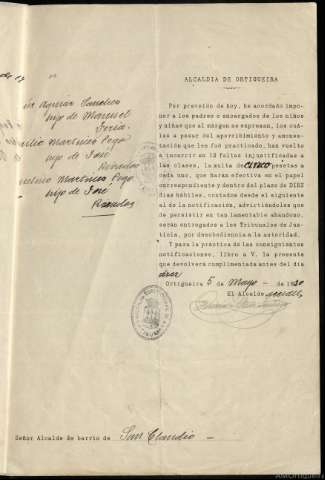 ALCALDIA DE ORTIGUEIRA
Por previsión de hoy, he acordado impo-
ner a los padres o encargados de los niños
y niñas que al márgen se expresan, los cuá-
les a pesar del apercibimiento y amones-
tación que les fué practicado, han vuelto
a incurrir en 12 faltas injustificadas a
las clases, la multa de CINCO pesetas a
cada uno, que harán efectiva en el papel
correspondiente y dentro del plazo de DIEZ
dias hábiles, contados desde el siguiente
al de la notificación, advirtiéndoles que
de persistir en tan lamentable abandono,
serán entregados a los Tribunales de Jus-
ticia, por desobediencia a la autoridad.
Y para la práctica de las consiguientes
notificaciones, libro a V. la presente
que devolverá cumplimentada antes del dia
Ortigueira 5 de Mayo de 1930
El Alcalde
hijo de Manuel
Martinez Pego
hijo de José
Martinez Pego
hijo de José
Señor Alcalde de barrio de San Claudio